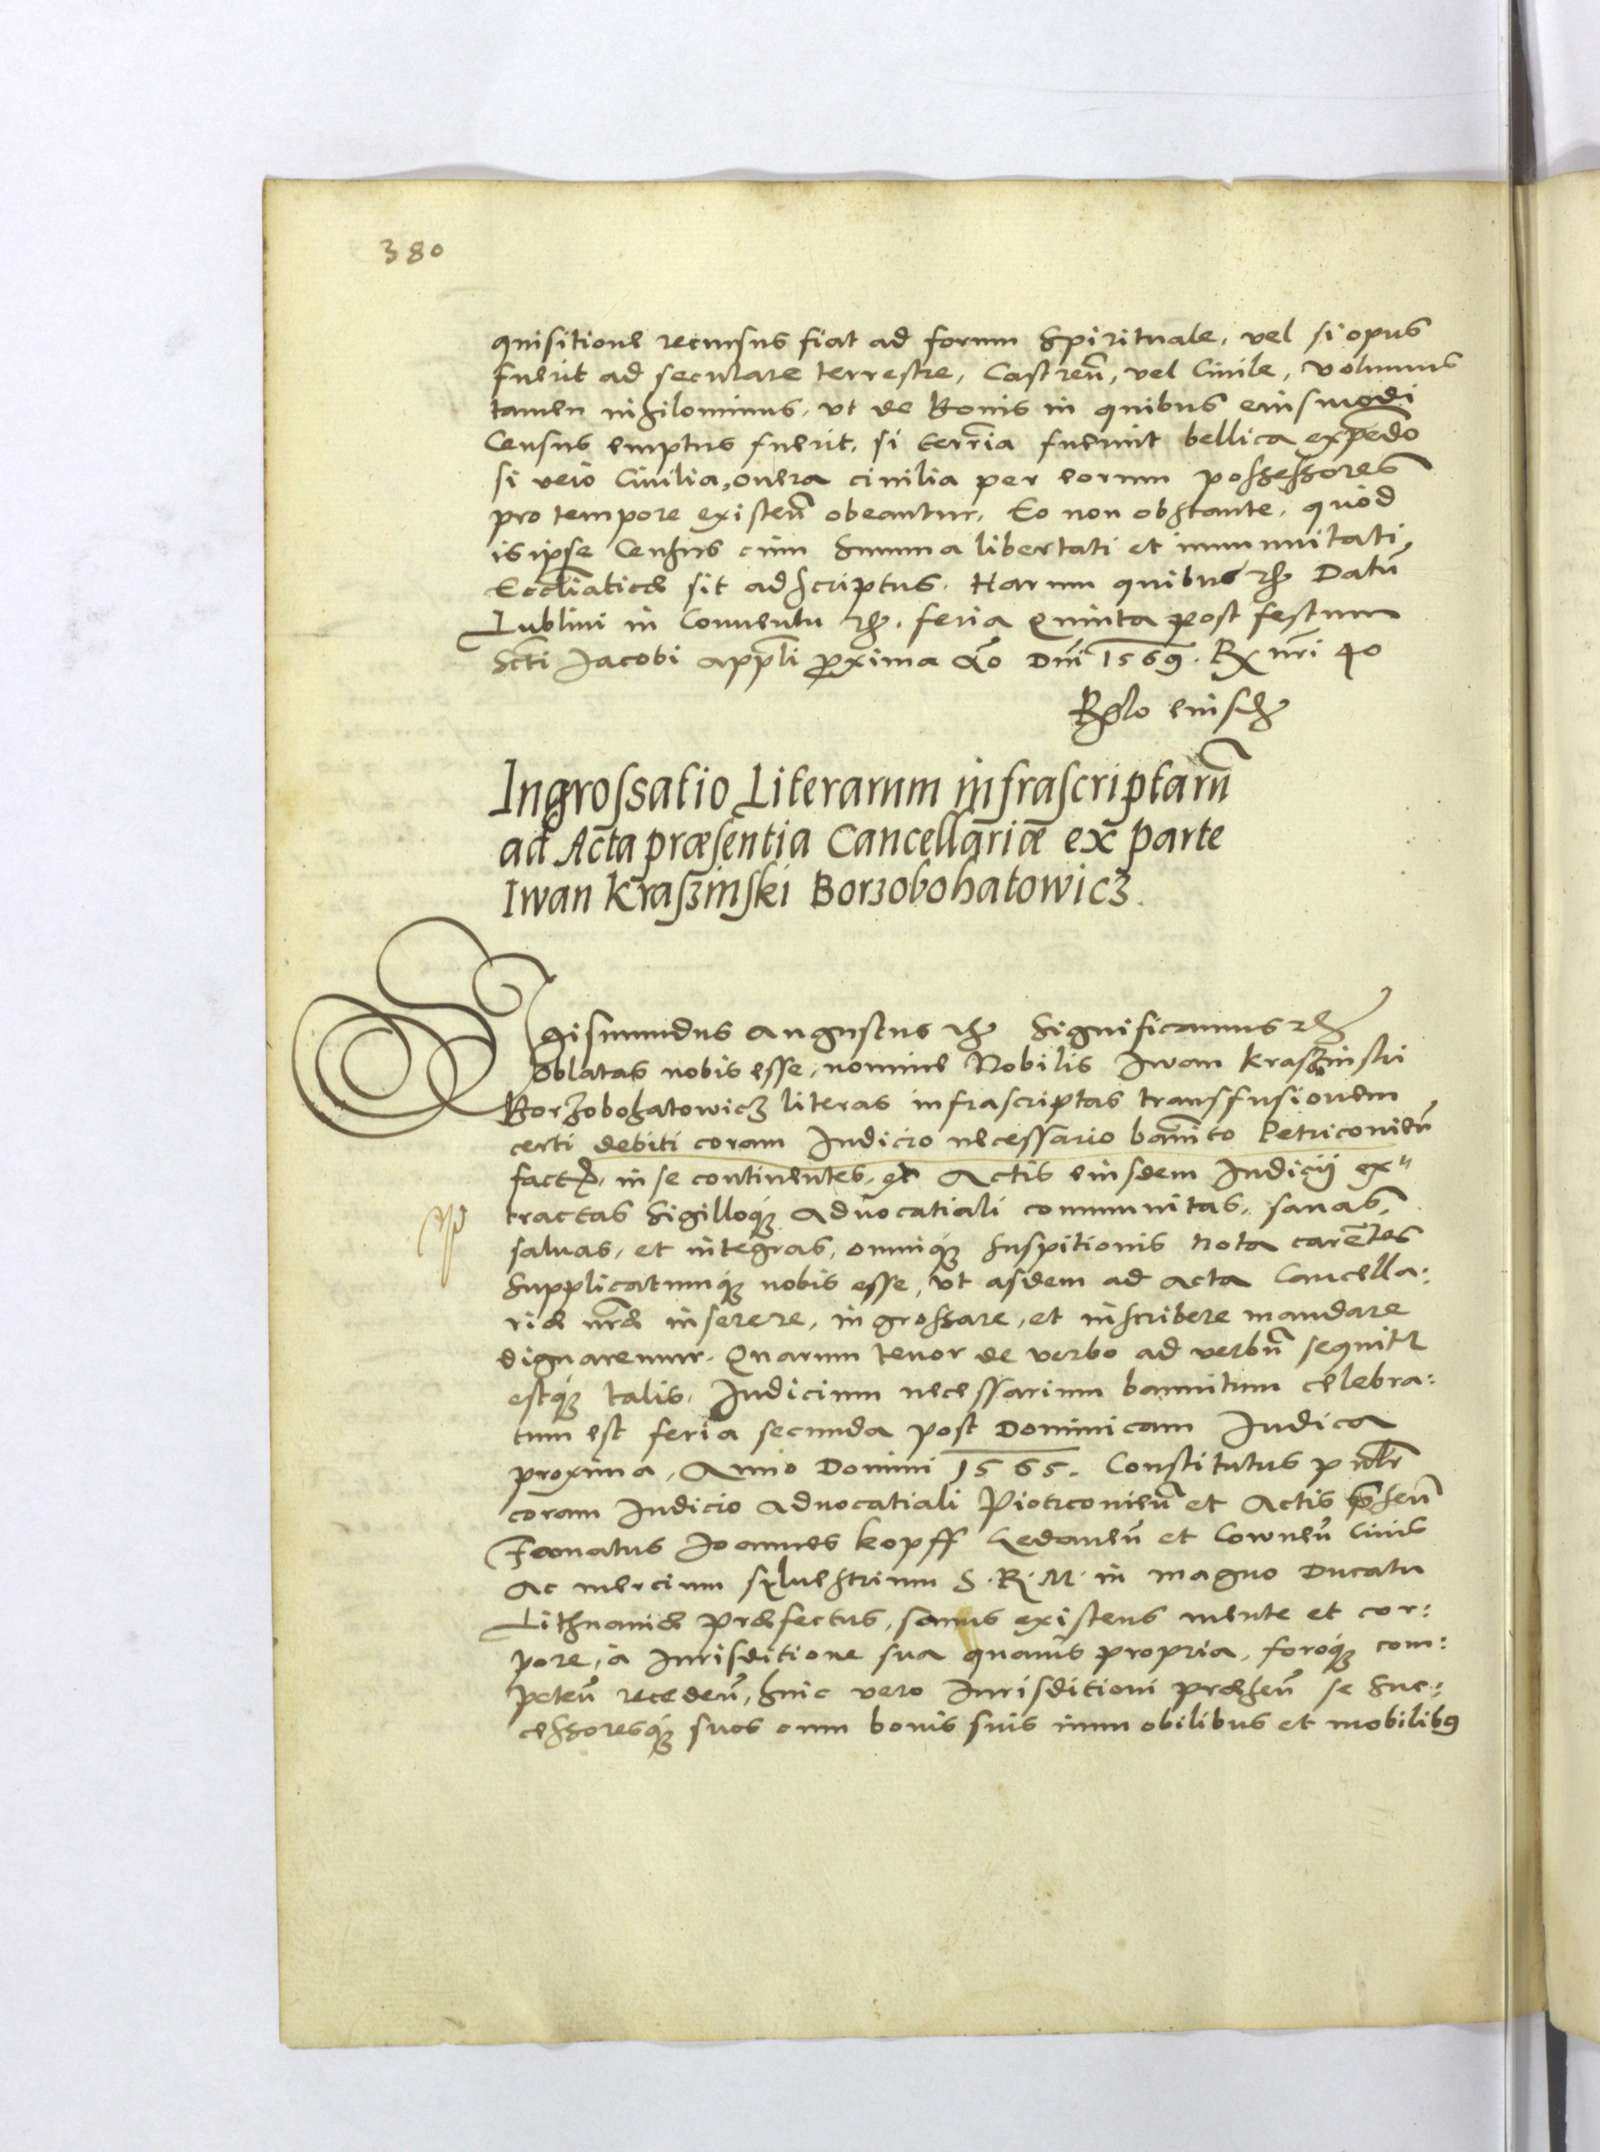 380
quisitione recursus fiat ad forum Spirituale, vel si opus
fuerit ad seculare terrestre, Castreñ, vel Ciuile, Volumus
tamen nihilominus, vt de Bonis in quibus eiusmodi
Census emptus fuerit, si terr̃ia fuerint bellica exp̃edo
si vero Ciuilia, onera ciuilia per eorum possessores
pro tempore existeñ obeantur, Eo non obstante, quod
is ipse Census cum Summa libertati et immunitati
Eccl̃iaticæ sit adscriptus. Harum quibus etc Datũ
Lublini in Conuentu etc. feria Quinta post festum
Sc̃ti Jacobi app̃li proxima Ao Dñi 1569. R nr̃i 40
Rglo eiusd
Ingrossatio Literarum infrascriptarũ
ad Acta præsentia Cancellariæ ex parte
Iwan Kraszinski Borzobohatowicz.
Sigismundus Augustus etc Significamus etc
Oblatas nobis esse, nomine Nobilis Iwan Kraszinski
Borzobohatowicz literas infrascriptas transfusionem
certi debiti coram Iudicio necessario bañito Petriconieñ
fact. in se continentes, ex Actis eiusdem Iudicij ex"
tractas Sigilloq́ue Aduocatiali communitas, sanas,
saluas, et integras, omniq́ue suspitionis nota carẽtes
Supplicatumq́ue nobis esse, vt asdem ad Acta Cancella:
riæ nr̃æ inserere, ingrossare, et inscribere mandare
dignaremur. Quarum tenor de verbo ad verbũ sequitur
estq́ue talis, Iudicium necessarium bannitum celebra:
tum est feria secunda post Dominicam Iudica
proxima, Anno Domini 1565. Constitutus p
coram Iudicio Aduocatiali Piotrconieñ et Actis p̃señ
Famatus Joannes Kopff Gedaneñ et Cowneñ Ciuis
Ac mercium syluestrium S. R. M. in magno Ducatu
Lithuaniæ Præfectus, sanus existens mente et cor:
pore, à Iurisditione sua quauis propria, foroq́ue com:
peteñ recedeñ, huic vero Iurisditioni præseñ se suc:
cessoresq́ue suos cum bonis suis immobilibus et mobilibus